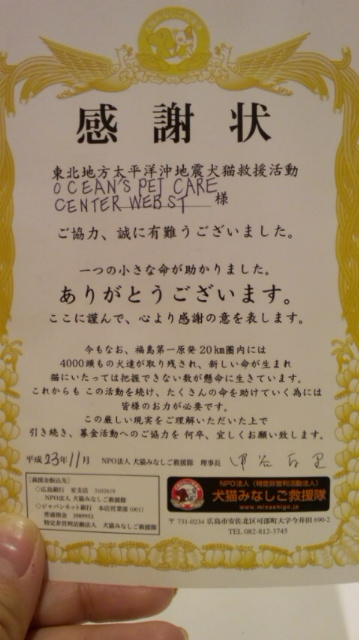 感謝状
東北地方太平洋沖地震犬猫救援活動
OCEAN'S PET CARE
CENTER WEB ST 様
ご協力、誠に有難うございました。
一つの小さな命が助かりました。
ありがとうございます。
ここに謹んで、心より感謝の意を表します。
今もなお、福島第一原発20km圏内には
4000頭もの犬達が取り残され、新しい命が生まれ
猫にいたっては把握できない数が懸命に生きています。
これからも この活動を続け、たくさんの命を助けていく為には
皆様のお力が必要です。
この厳しい現実をご理解いただいた上で
引き続き、募金活動へのご協力を 何卒、宜しくお願い致します。
平成23年11月 NPO法人 犬猫みなしご救援隊 理事長
【義援金振込先】
◇広島銀行 可部支店
NPO法人 犬猫みなしご救援隊
◇ジャパンネット銀行 本店営業部(001)
普通預金
特定非営利活動法人 犬猫みなしご救援隊
NPO法人(特定非営利活動法人)
犬猫みなしご救援隊
www.minashigo.jp
〒731-0234 広島市安佐北区可部町大字今井田690-2
TEL 082-812-3745